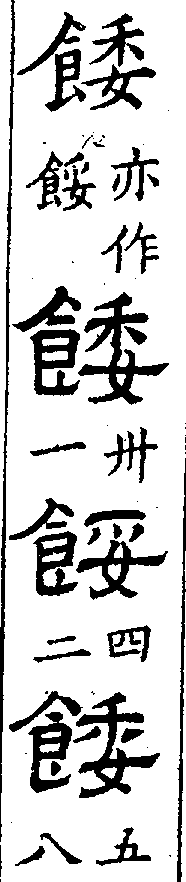 餧
亦作
餒
餧
卅
一
餒
四
二
餧
五
八